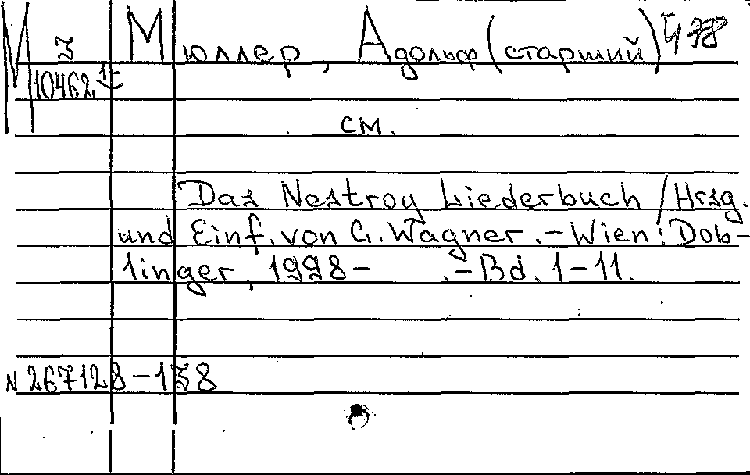 М 3 Мюллер, Адольф (старший)
10462
см.
Das Nestroy Liederbuch / Hrsg.
und Einf. von G. Wagner. - Wien: Dob-
linger, 1998-      . - Bd. 1-11.
N 267128-138